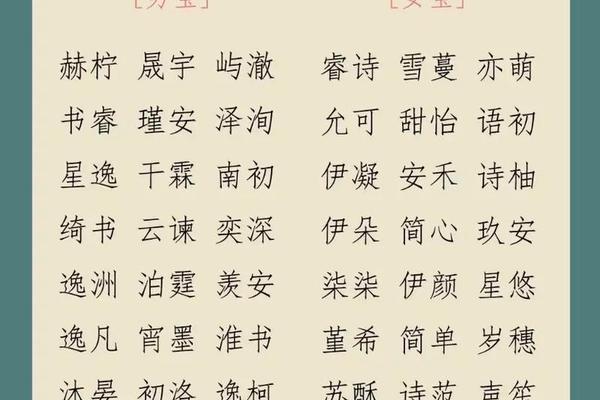 [男宝] [女宝]
赫柠 晟宇 屿澈 睿诗 雪蔓 亦萌
书睿 瑾安 泽洵 允可 甜怡 语初
星逸 干霖 南初 伊凝 安禾 诗柚
绮书 云谏 奕深 伊朵 简心 玖安
逸洲 泊霆 羡安 柒柒 伊颜 星悠
逸凡 宵墨 淮书 堇希 简单 岁穗
沐晏 初洛 逸柯 苏酥 诗范 声笙